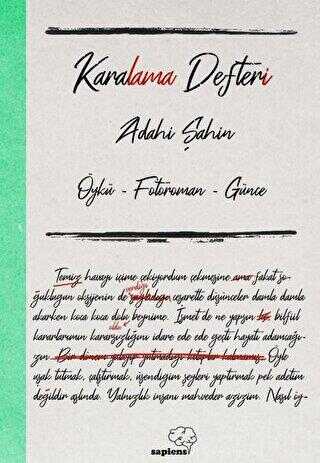 Karalama Defteri
Adahi Şahin
Öykü - Fotoroman - Günce
Temiz havayı içime çekiyordum çekmesine ama fakat so-
verdiği
ğukluğun oksijenin de sağladığı cesaretle düşünceler damla damla
akarken koca koca dolu beynime. İsmet de ne yapsın bilfiil
oldu
kararlarımın kararsızlığını idare ede ede geçti hayatı adamcağı-
zın. Bir dönem kitaplar kalmamış. Öyle
uşak tutmak, çalıştırmak, üşendiğim şeyleri yaptırmak pek adetim
değildir aslında. Yalnızlık insanı mahveder azizim. Nasıl iy-
sapiens